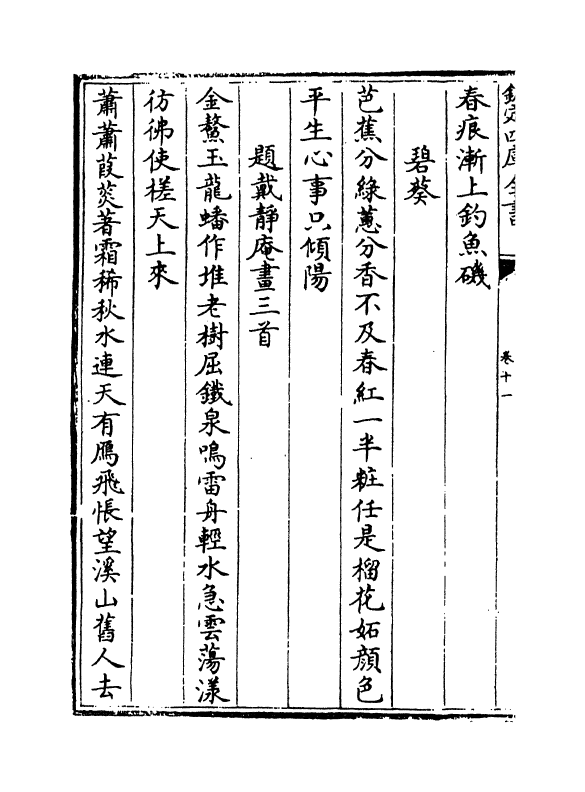 欽定四庫全書
卷十一
春痕漸上釣魚磯
碧葵
芭蕉分綠蕙分香不及春紅一半粧任是榴花妬顔色
平生心事只傾陽
題戴靜庵畫三首
金鰲玉龍蟠作堆老樹屈鐵泉鳴雷舟輕水急雲蕩漾
彷彿使槎天上來
蕭蕭葭菼著霜稀秋水連天有鴈飛悵望溪山舊人去